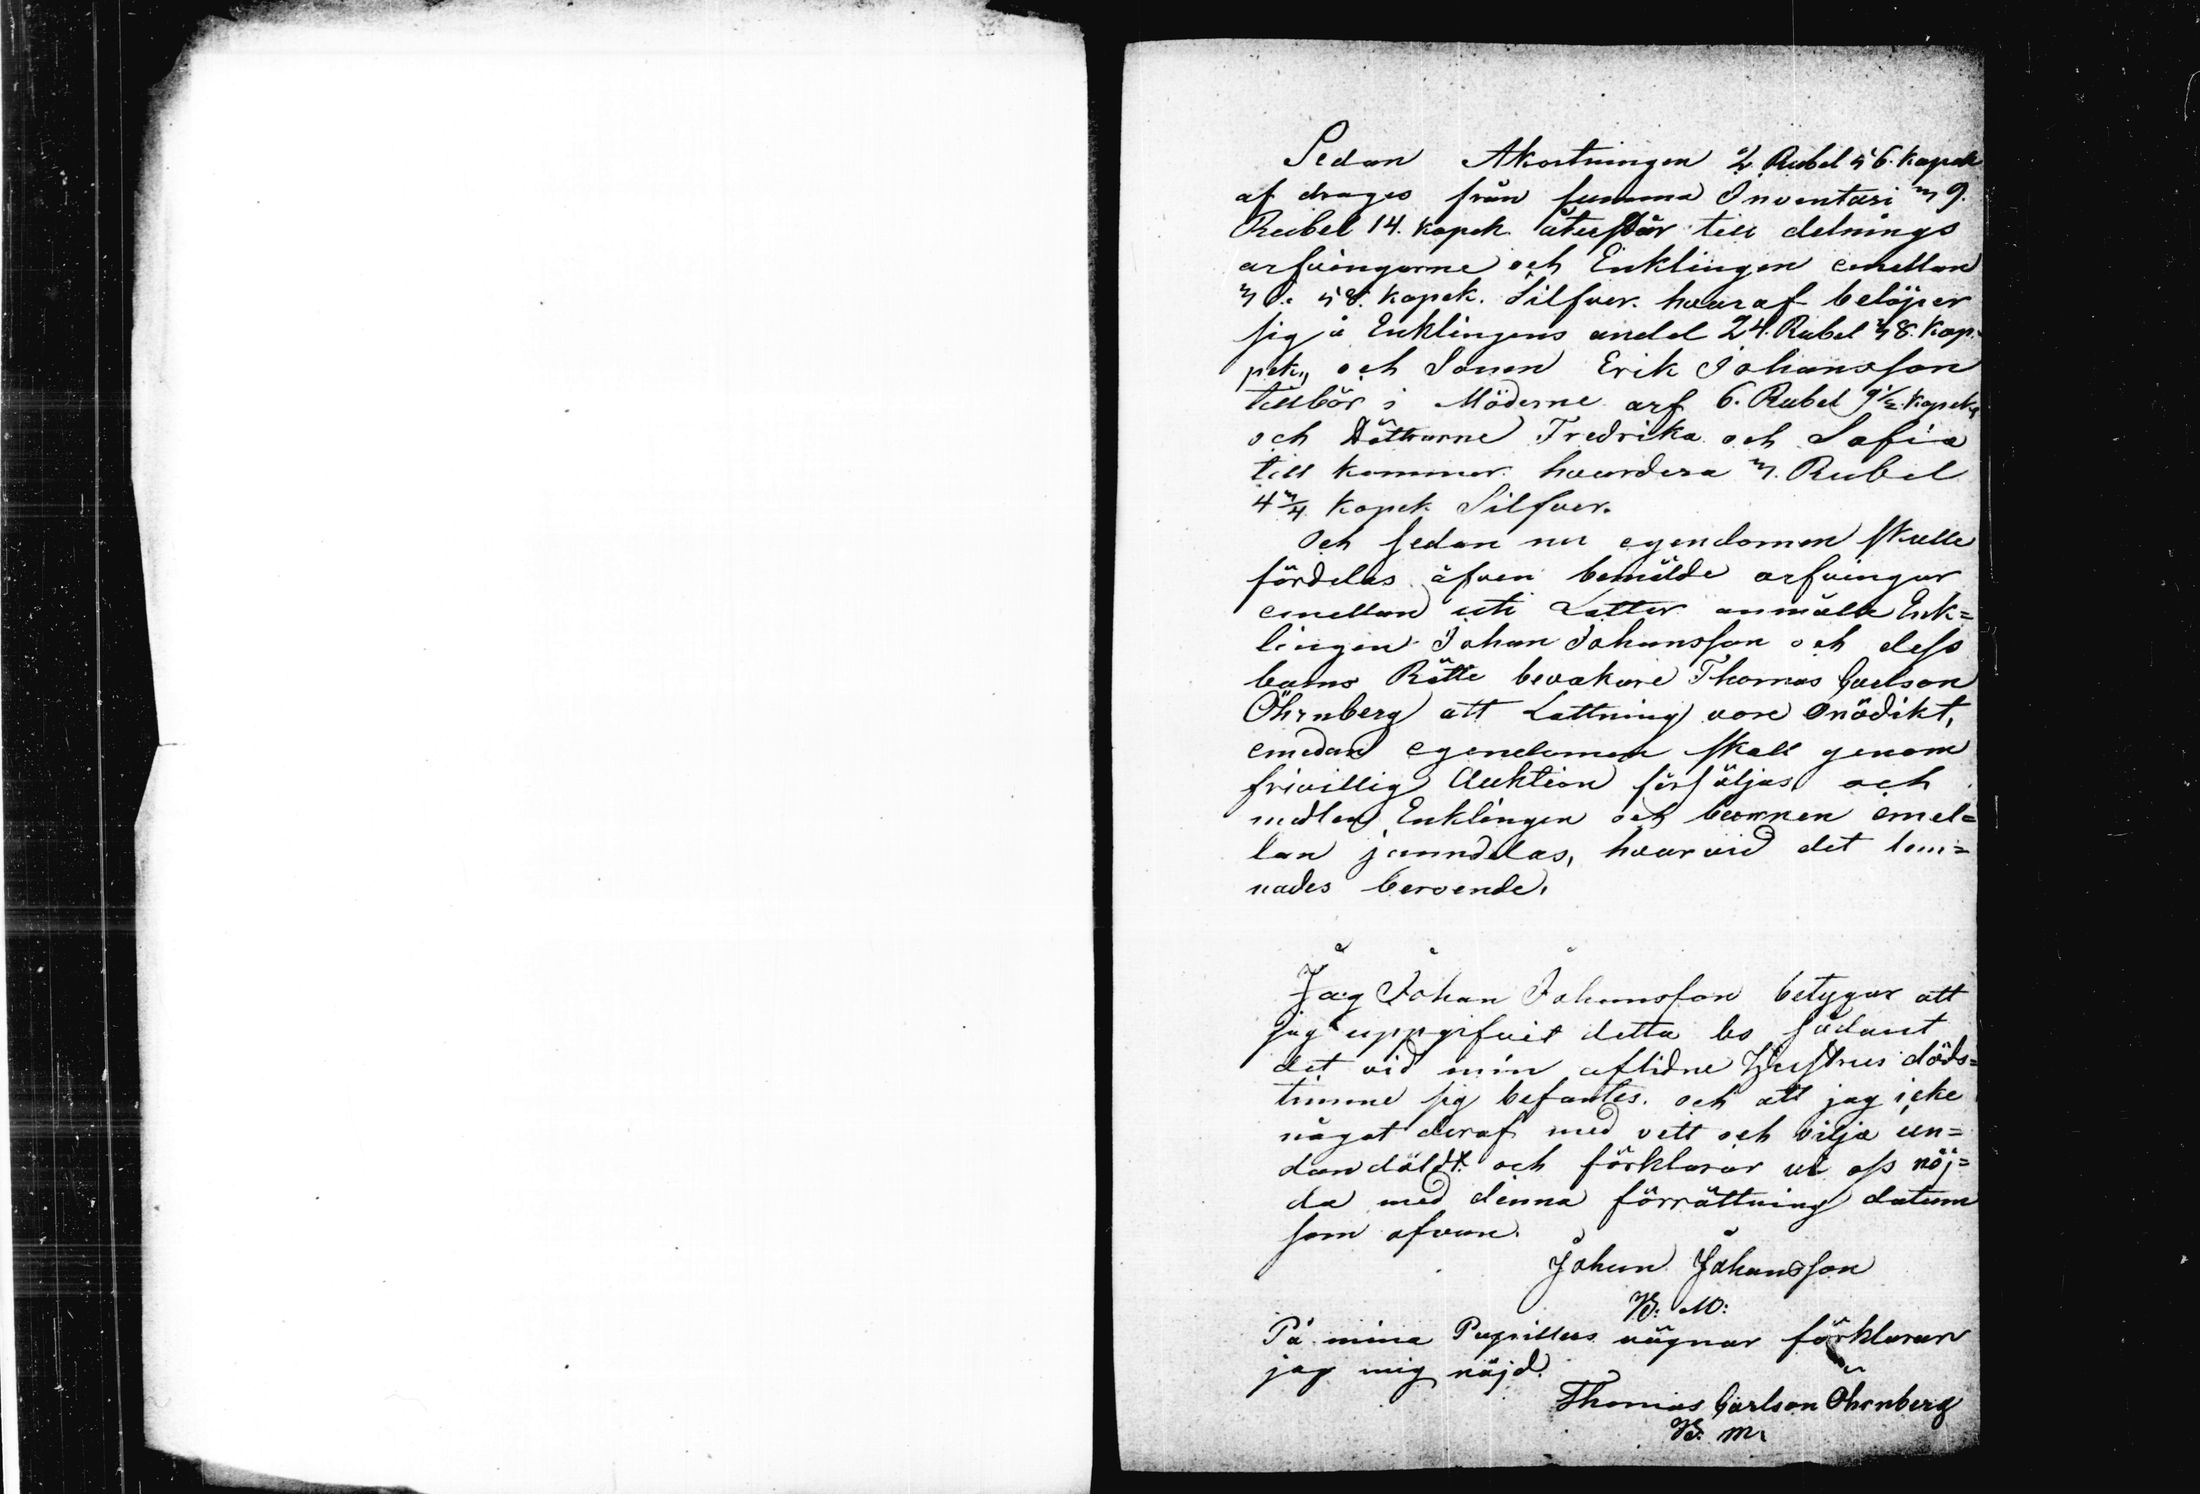 Sedan Akortningen 2 Rubel 56. kopek
af drages från summa Inventari 39.
Rubel 14. kopek. återstår till delnings
arfvingarne och Enklingen emellan
36. 58. kopek. Silfver. hvaraf belöper
sig å Enklingens andel 24. Rubel 38. kop-
pek,, och Sonen Erik Johansson
tillbör i Möderne arf 6. Rubel 9½. kopek,
och Döttrarne Fredrika och Sofia
till kommer hvardera 3. Rubel
4¾ kopek Silfver.
Och sedan nu egendomen skulle
fördelas äfven bemälde arfvingar
emellan uti Lotter anmälte Enk=
lingen Johan Johansson och dess
barns Rätte bevakare Thomas Carlson
Öhrnberg att Lottning vore onödikt,
emedan egendomen skall genom
frivillig Auktion försäljas och
medlen Enklingen och barnen emel=
lan jemndelas, hvarvid det lem=
nades beroende.
Jag Johan Johansson betygar att
jag uppgifvit detta bo sådant
det vid min aflidne Hustrus döds=
timme sig befantes. och att jag icke
något deraf med vett och vilja un=
dandöldt och förklarar vi oss nöj=
da med denna förrättning datum
som ofvan.
Johan Johansson
B: M:
På mina Pupillers vägnar förklarar
jag mig nöjd.
Thomas Carlson Öhrnberg
B: M: